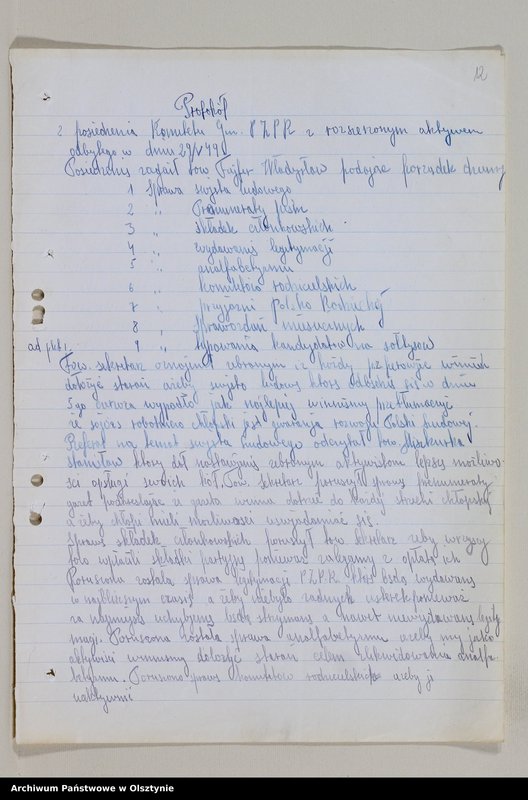 12
Protokół
z posiedzenia Komitetu Gm. PZPR z rozszerzonym aktywem
odbytego w dniu 29/V 49 r
Posiedzenie zagaił tow Fajfer Władysław podając porządek dzienny
1 Sprawa święta ludowego
2 " Prenumeraty pism
3 " składek członkowskich
4 " wydawania legitymacji
5 " analfabetyzmu
6 " komitetów rodzicielskich
7 " przyjaźni Polsko Radzieckiej
8 " sprawozdań miesięcznych
9 " typowania kandydatów na sołtysów
ad pkt 1.
Tow. sekretarz oznajmił zebranym iż każdy peperowiec winien
dołożyć starań ażeby święto ludowe które odbędzie się w dniu
5go czerwca wypadło jak najlepiej winniśmy przetłumaczyć
że sojusz robotniczo chłopski jest gwarancją rozwoju Polski Ludowej.
Referat na temat święta ludowego odczytał tow
Stanisław który dał nastawienie zebranym aktywistom lepszej możliwo-
ści opługi swoich kół. Tow. sekretarz poruszył sprawę prenumeraty
gazet podkreślając iż gazeta winna dotrzeć do każdej strzechy chłopskiej
a żeby chłopi mieli możliwości uświadamiać się.
Sprawę składek członkowskich poruszył tow sekretarz żeby wszyscy
tow wpłacili składki partyjne ponieważ zalegamy z opłatą ich
Poruszona została sprawa legitymacji PZPR które będą wydawane
w najbliższym czasie a żeby nie było żadnych usterek ponieważ
za najmniejsze uchybienie będą wstrzymane a nawet niewydawane legity
macji. Poruszona została sprawa analfabetyzmu ażeby my jako
aktywiści winniśmy dołożyć starań celem zlikwidowania analfa
betyzmu. Poruszono sprawę komitetów rodzicielskich ażeby je
uaktywnić
Archiwum Państwowe w Olsztynie